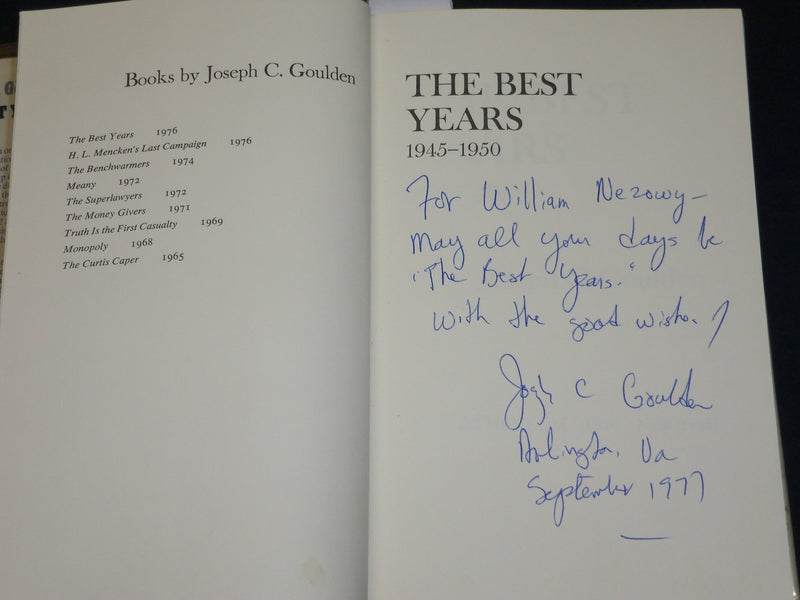 Books by Joseph C. Goulden
The Best Years 1976
H. L. Mencken's Last Campaign 1976
The Benchwarmers 1974
Meany 1972
The Superlawyers 1972
The Money Givers 1971
Truth Is the First Casualty 1969
Monopoly 1968
The Curtis Caper 1965
THE BEST
YEARS
1945–1950
For William Nezowy —
May all your days be
"The Best Years."
With the good wishes of
Joseph C Goulden
Arlington, Va
September 1977